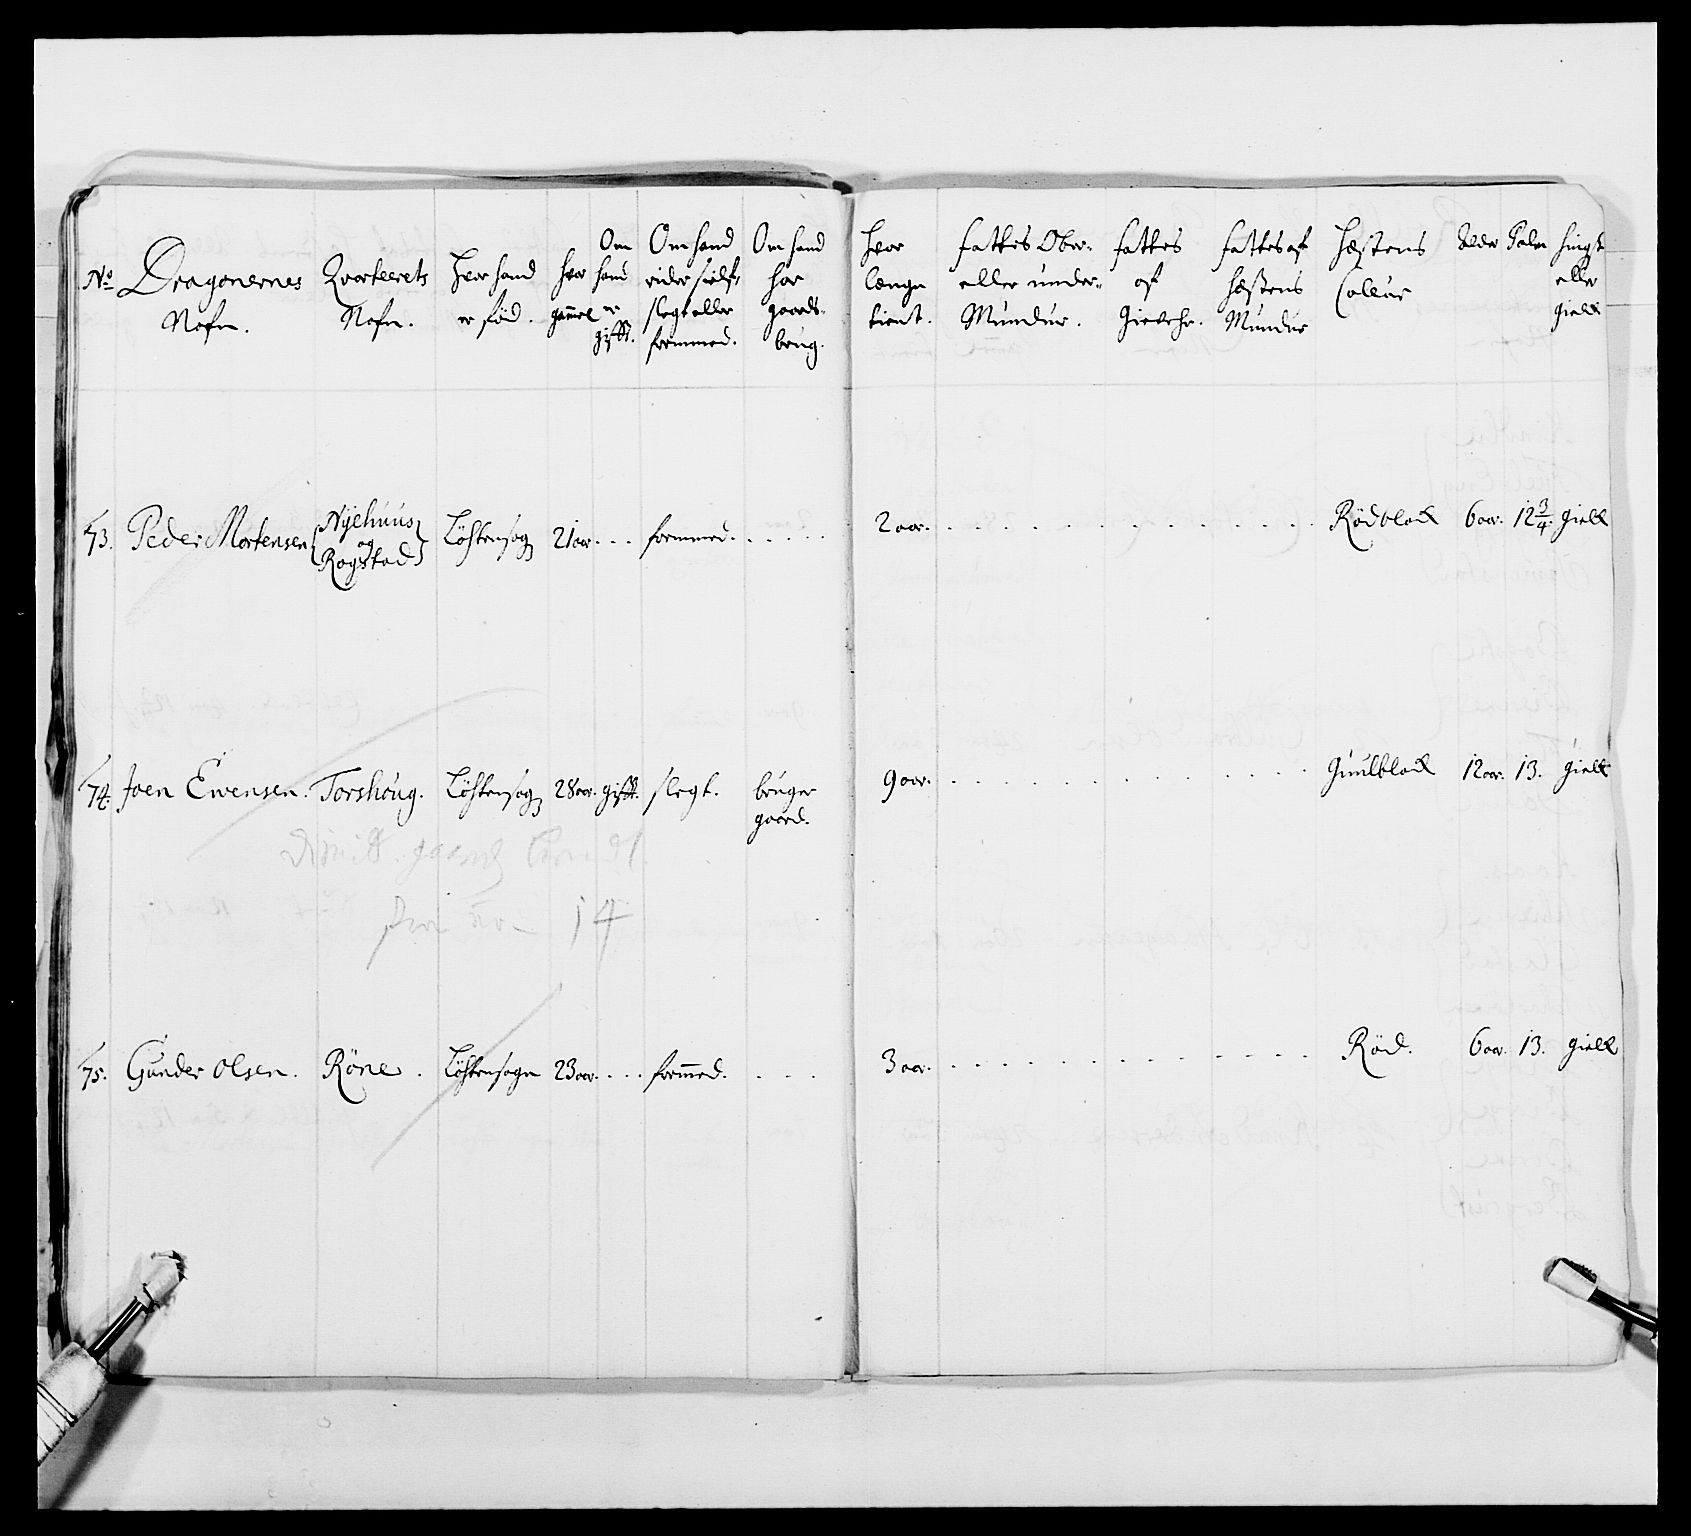 No Dragonernes Nafn. Qvarteerets Nafn. Hvor hand er fød. Hvor gammel Om hand er gifft. Om hand rider sielf, slegt eller fremmed. Om hand har gaards- brug. Hvor længe tient. Fattes Ober- eller under- Mundur. Fattes af Giewehr. Fattes af hæstens Mundur Hæstens Collur Alder Palm hingst eller gield
73. Peder Mortensen {Nÿehuus og Rogstad} Løhtensog 21 aar. . . fremmed. . . . . . 2 aar. . . . . . . . . . . . . . . Rødblack 6 aar. 12 3/4. gield
74. Joen Ewensen. Torshoug. Løhtensog 28 aar. gifft. slegt. bruger gaard. 9 aar. . . . . . . . . . . . . . . Guulblack 12 aar. 13. gield
14
75. Gunder Olsen. Røne. Løhtensogn 23 aar. . . . fremmed. . . . 3 aar. . . . . . . . . . . . . . Rød. 6 aar. 13. gield